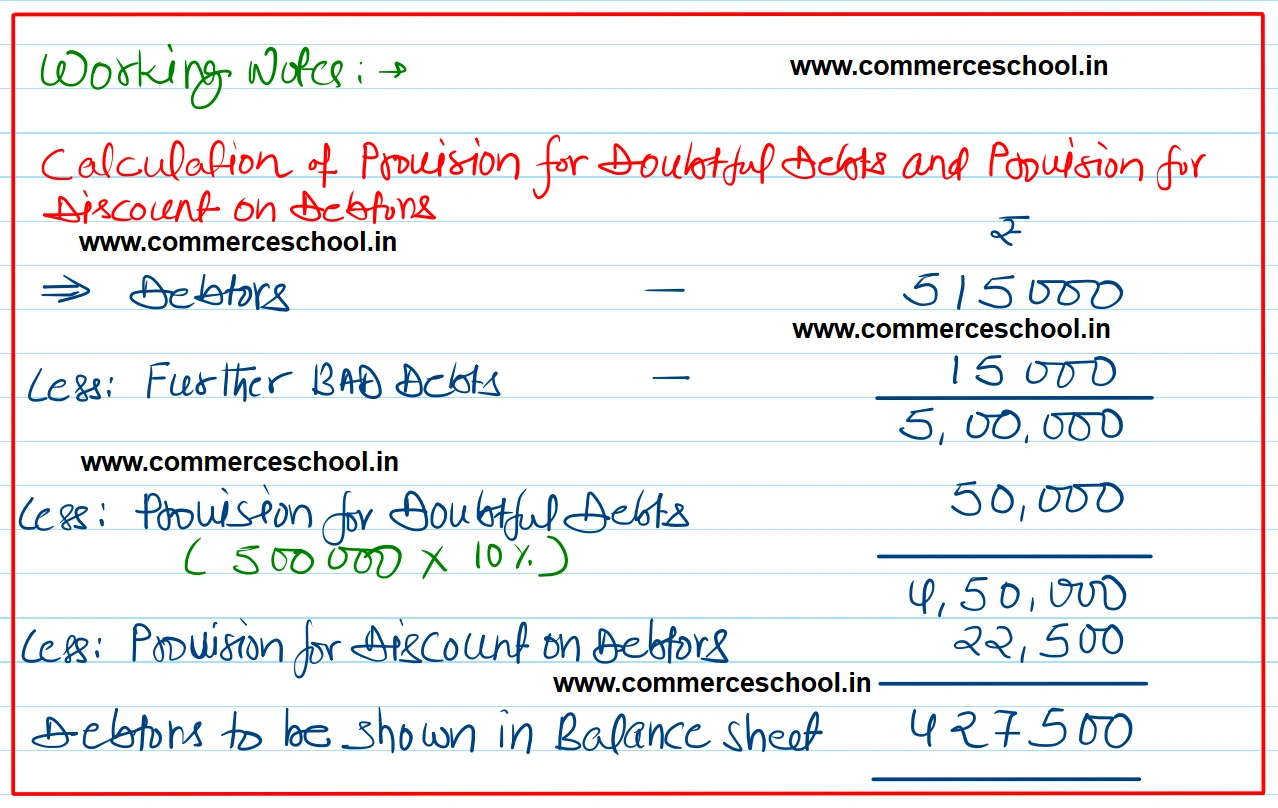 Working Notes: →
www.commerceschool.in
Calculation of Provision for Doubtful Debts and Provision for
Discount on Debtors
www.commerceschool.in
₹
⇒ Debtors — 515000
www.commerceschool.in
Less: Further BAD Debts — 15000
5,00,000
www.commerceschool.in
Less: Provision for Doubtful Debts 50,000
(500000 × 10%.)
4,50,000
Less: Provision for Discount on Debtors 22,500
www.commerceschool.in
Debtors to be shown in Balance sheet 427500